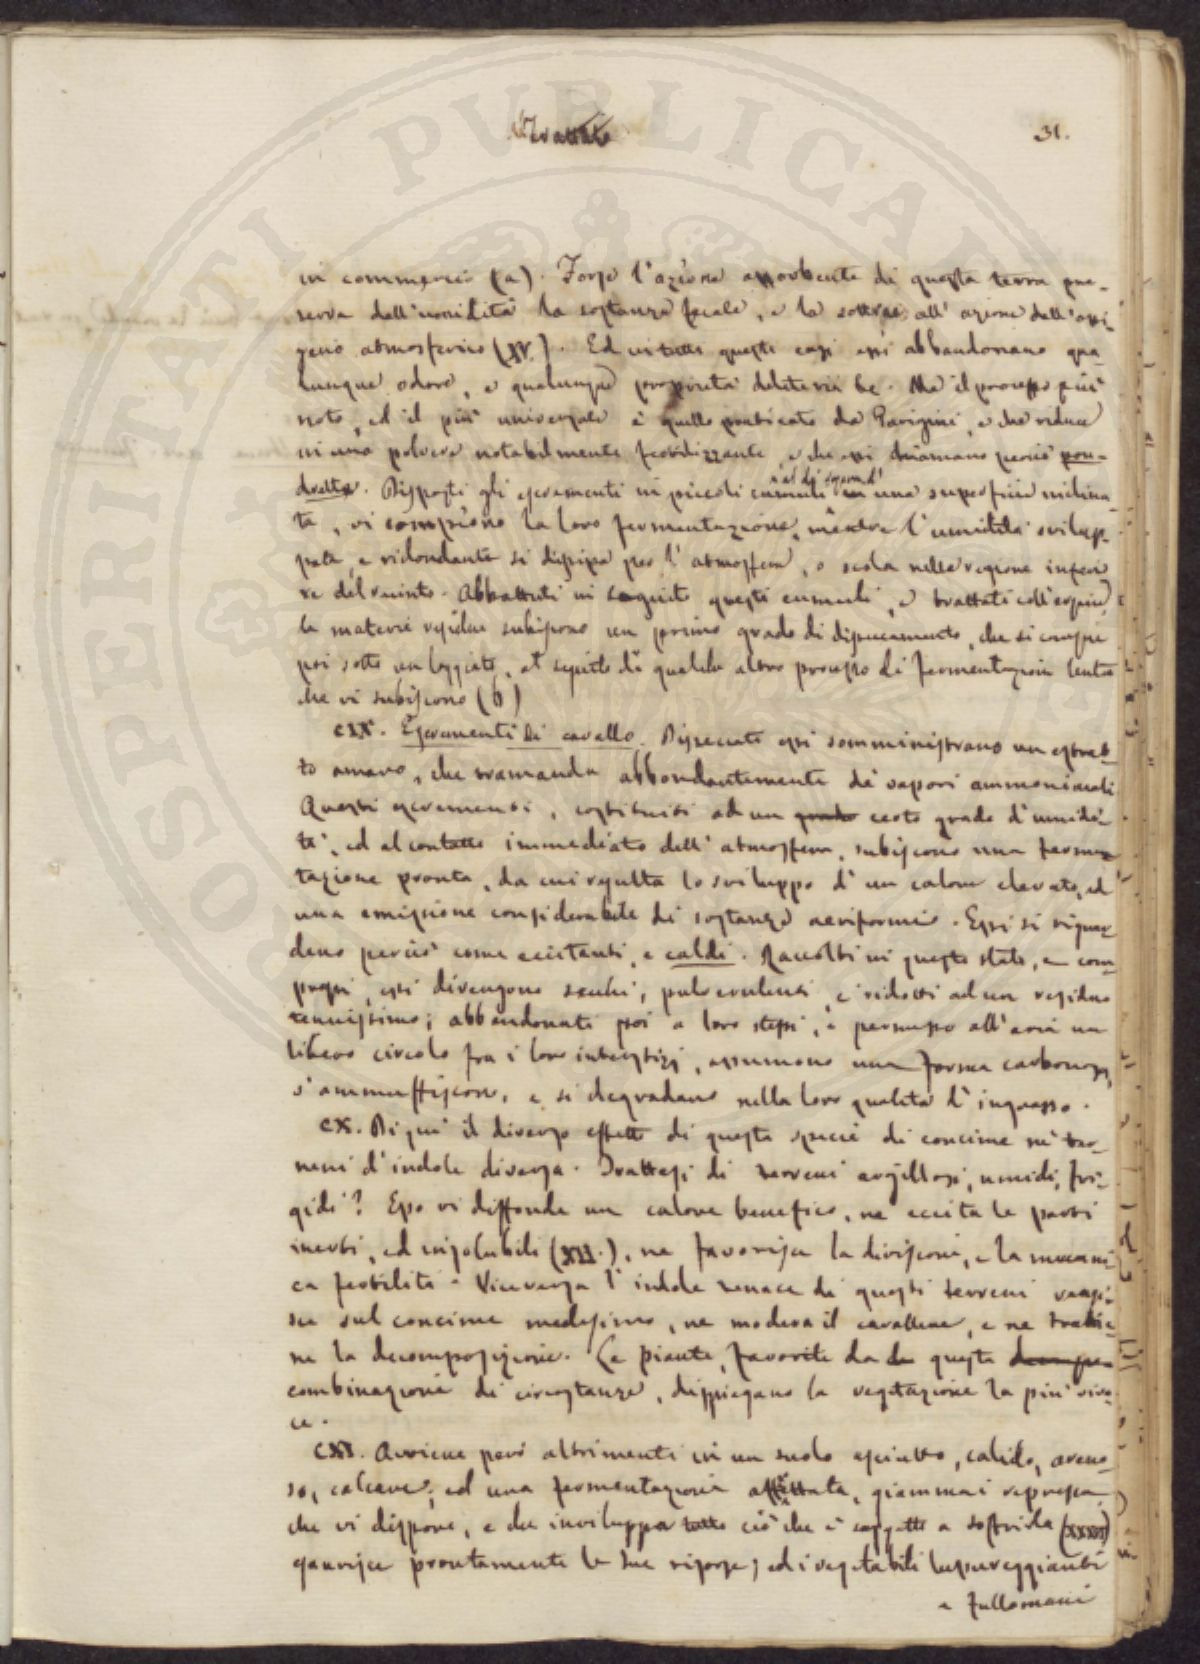 Trattato
31.
in commercio (a). Forse l'azione assorbente di questa terra pre-
serva dall'umidità la sostanza fecale, e la sottrae all'azione dell'ossi-
geno atmosferico (XV.). Ed in tutti questi casi essi abbandonano qua-
lunque odore, e qualunque proprietà deleteria &c. Ma il processo più
noto, ed il più universale è quello praticato da Parigini, e che riduce
in una polvere notabilmente fertilizzante, e che essi chiamano perciò pou-
drette. Disposti gli escrementi in piccoli cumuli in una superficie inclina-
ta, vi compiono la loro fermentazione, mentre l'umidità svilup-
pata, e ridondante si dissipa per l'atmosfera, o scola nella regione inferio-
re del recinto. Abbattuti in seguito questi cumuli, e trattati coll'erpice,
le materie residue subiscono un primo grado di disseccamento, che si compie
poi sotto un loggiato, al seguito di qualche altro processo di fermentazione lenta
che vi subiscono (b)
CIX. Escrementi di cavallo. Disseccati essi somministrano un estrat-
to amaro, che tramanda abbondantemente de' vapori ammoniacali
Questi escrementi, costituiti ad un grado certo grado d'umidi-
tà, ed al contatto immediato dell'atmosfera, subiscono una fermen-
tazione pronta, da cui risulta lo sviluppo d'un calore elevato, ed
una emissione considerabile di sostanze aeriformi. Essi si riguar-
dano perciò come eccitanti, e caldi. Raccolti in questo stato, e com-
pressi, essi divengono secchi, pulverulenti, e ridotti ad un residuo
tenuissimo; abbandonati poi a loro stessi, e permesso all'aria un
libero circolo fra i loro interstizj, assumono una forma carbonosa,
s'ammuffiscono, e si degradano nella loro qualità d'ingrasso.
CX. Di qui il diverso effetto di questa specie di concime ne' ter-
reni d'indole diversa. Trattasi di terreni argillosi, umidi, fri-
gidi? Esso vi diffonde un calore benefico, ne eccita le parti
inerti, ed insolubili (XII.), ne favorisce la divisione, e la meccani-
ca fertilità. Viceversa l'indole tenace di questi terreni reagi-
sce sul concime medesimo, ne modera il carattere, e ne trattie-
ne la decomposizione. Le piante, favorite da questa
combinazione di circostanze, dispiegano la vegetazione la più viva-
ce.
CXI. Avviene però altrimenti in un suolo asciutto, calido, areno-
so, calcare; ed una fermentazione affrettata, giammai repressa,
che vi dispone, e che inviluppa tutto ciò che è soggetto a soffrirla (XXXVI)
esaurisce prontamente le sue risorse; ed i vegetabili lussureggianti
e fullomani